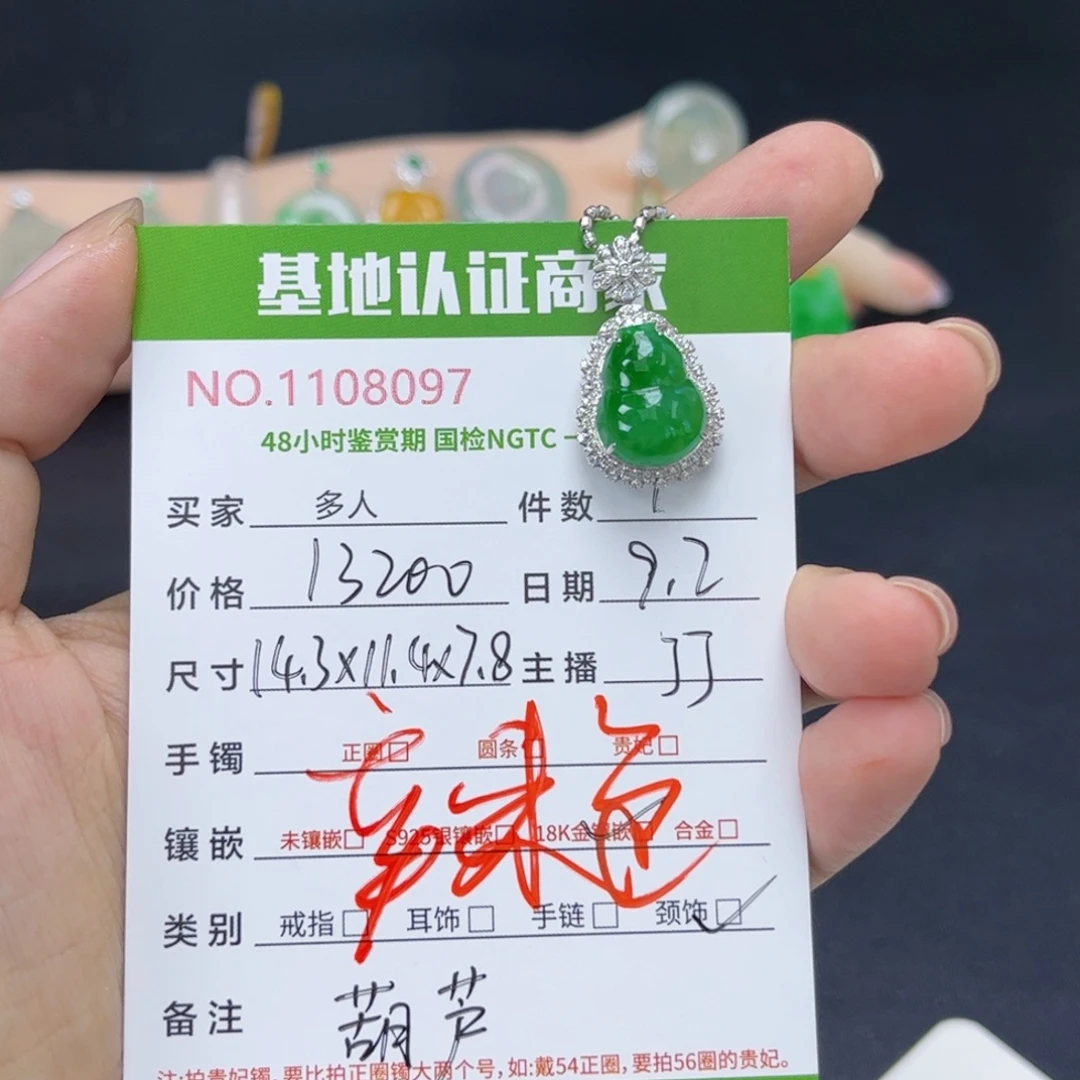 基地认证商家
NO.1108097
48小时鉴赏期 国检NGTC
买家 多人 件数 1
价格 13200 日期 9.2
尺寸 14.3x11.4x7.8 主播 JJ
手镯 正圈□ 圆条□ 贵妃□
镶嵌 未镶嵌□ S925银镶嵌□ 18K金镶嵌□ 合金□
辣色
类别 戒指□ 耳饰□ 手链□ 颈饰□✓
备注 葫芦
注:拍贵妃镯,要比拍正圈镯大两个号,如:戴54正圈,要拍56圈的贵妃。